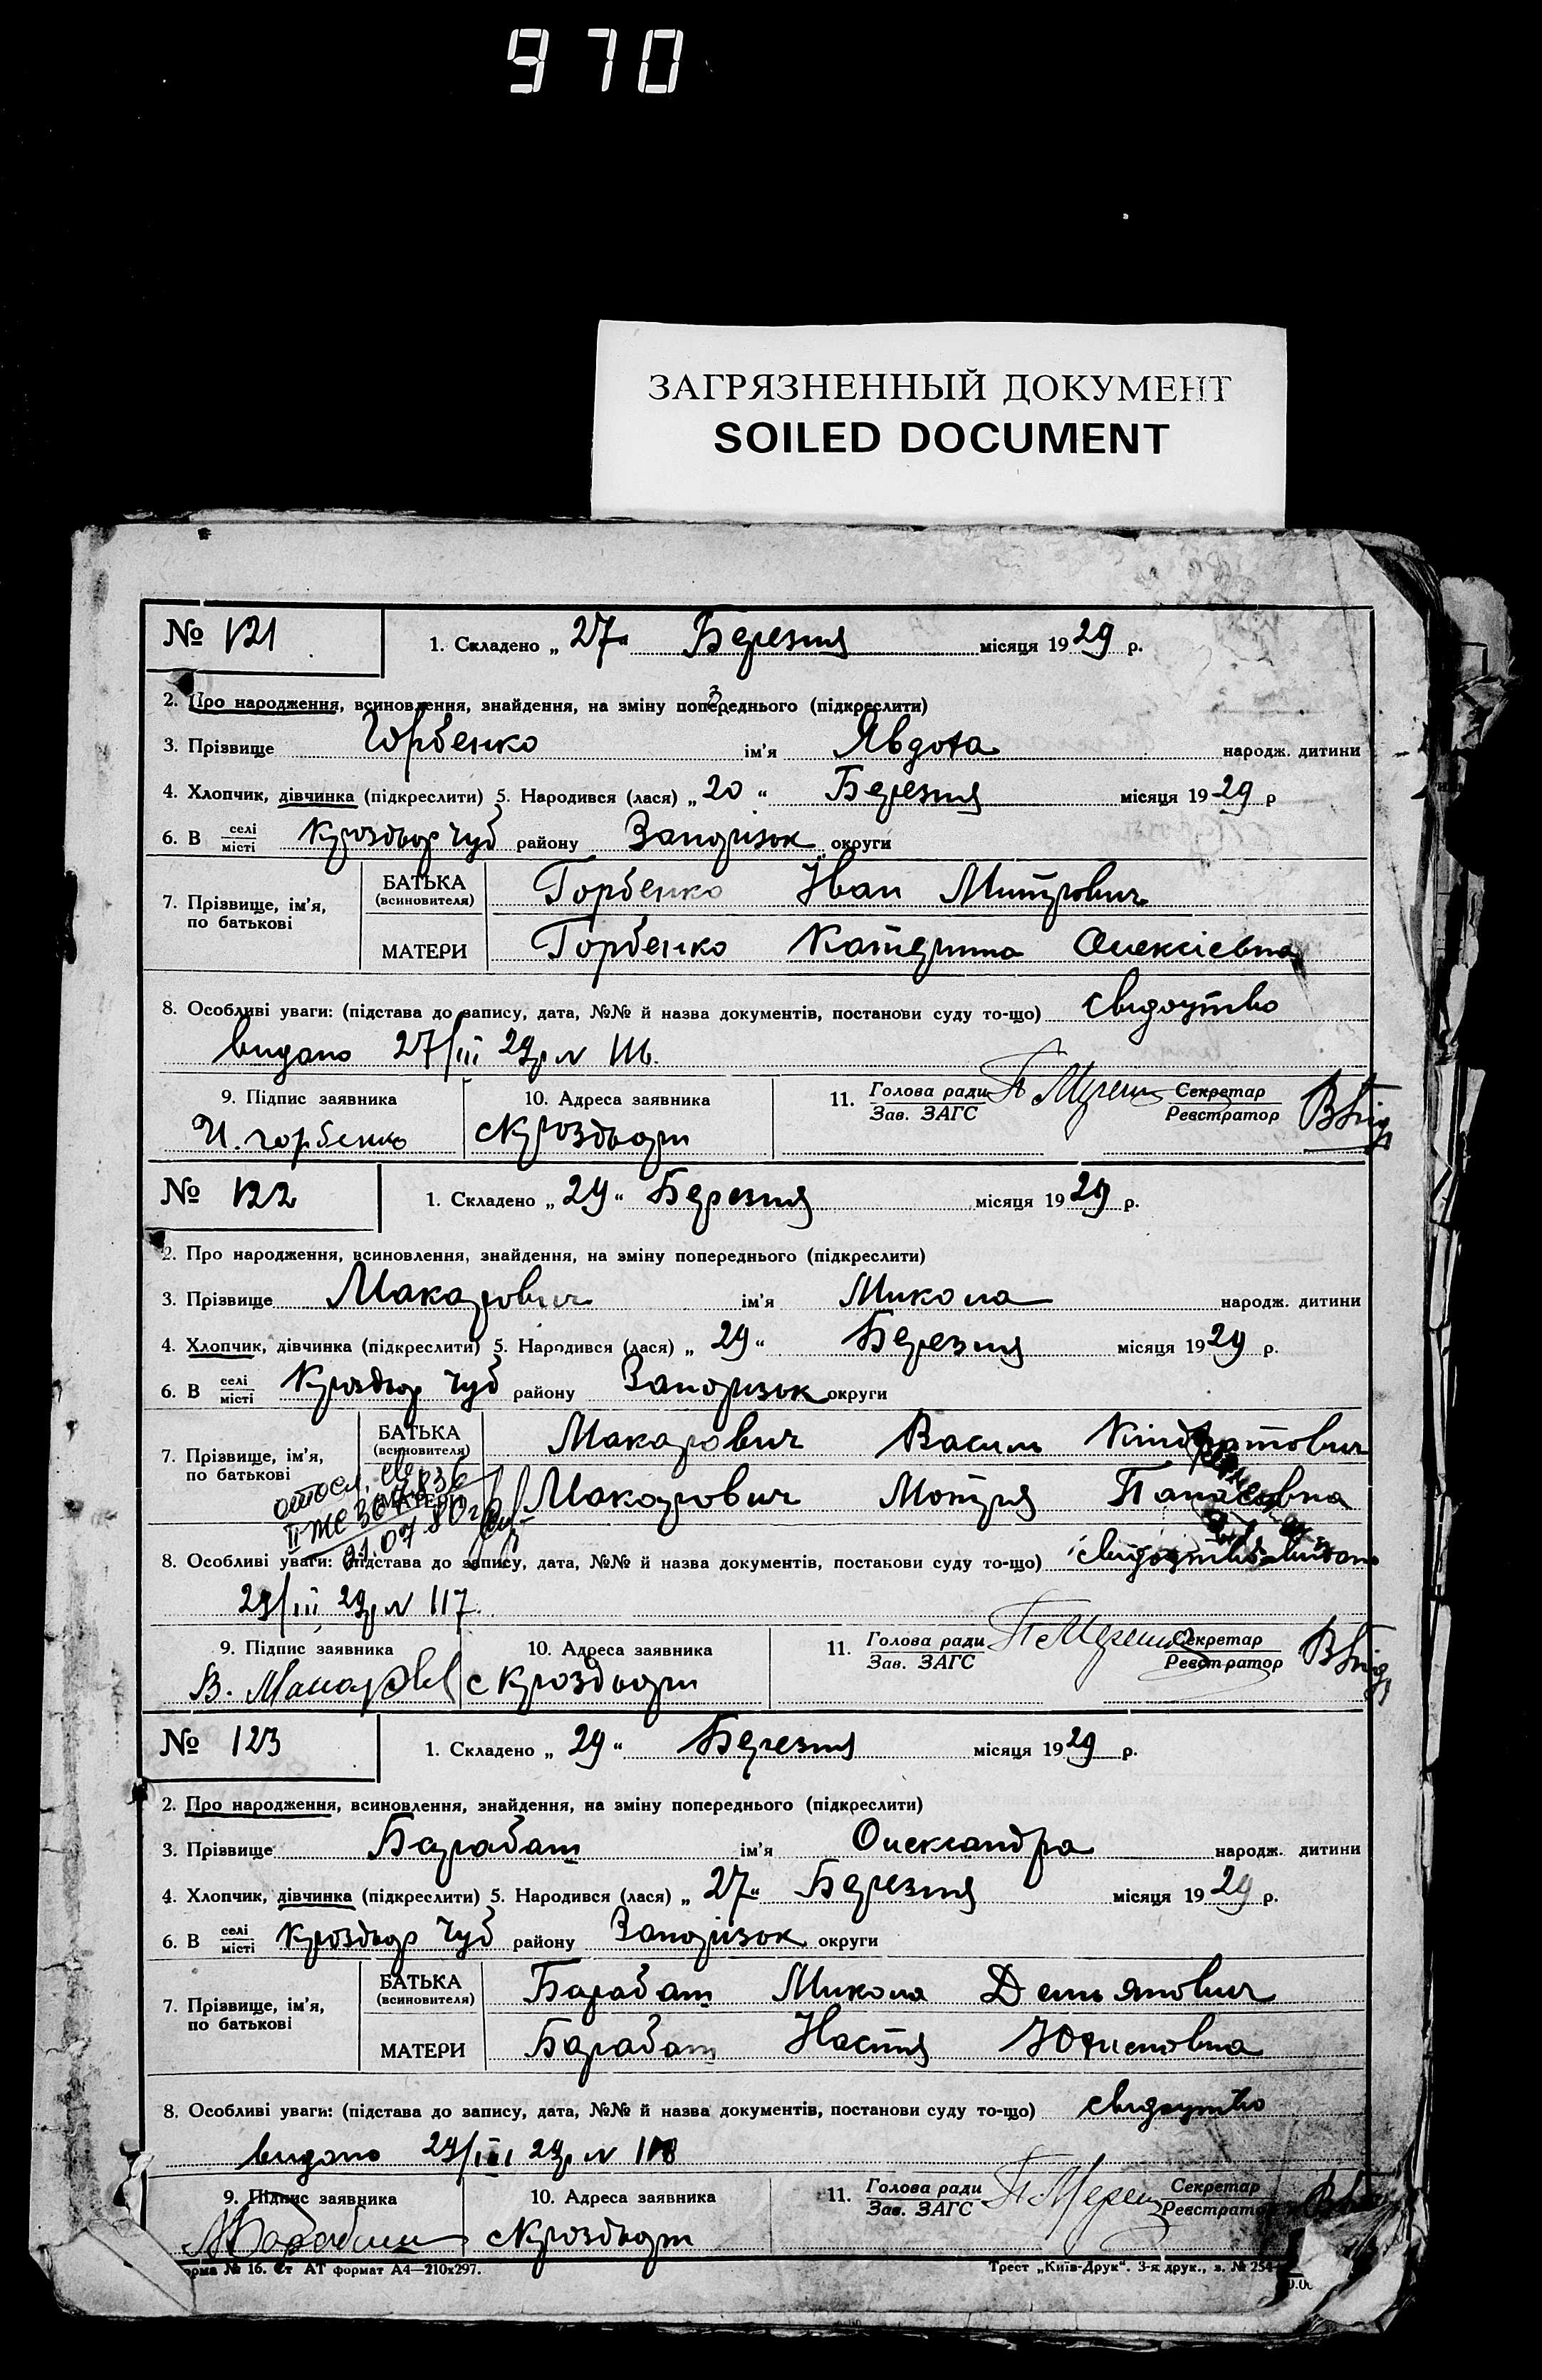 970
ЗАГРЯЗНЕННЫЙ ДОКУМЕНТ
SOILED DOCUMENT
№ 121
1. Складено „ 27 “ Березня місяця 1929 р.
2. Про народження, всиновлення, знайдення, на зміну попереднього (підкреслити)
3. Прізвище Горбенко ім'я Явдоха народж. дитини
4. Хлопчик, дівчинка (підкреслити) 5. Народився (лася) „ 20 “ Березня місяця 1929 р
6. В селі місті району Запорізьк округи
7. Прізвище, ім'я, по батькові
БАТЬКА (всиновителя) Горбенко Иван Митрович
МАТЕРИ Горбенко Катерина Олексієвна
8. Особливі уваги: (підстава до запису, дата, №№ й назва документів, постанови суду то-що) свидоцтво
видано 27/III 29р N 116.
9. Підпис заявника 10. Адреса заявника 11. Голова ради Зав. ЗАГС Секретар Реєстратор
И. горбенко
№ 122
1. Складено „ 29 “ Березня місяця 1929 р.
2. Про народження, всиновлення, знайдення, на зміну попереднього (підкреслити)
3. Прізвище Макарович ім'я Микола народж. дитини
4. Хлопчик, дівчинка (підкреслити) 5. Народився (лася) „ 29 “ Березня місяця 1929 р.
6. В селі місті району Запорізьк округи
7. Прізвище, ім'я, по батькові
БАТЬКА (всиновителя) Макарович Василь Кіндратович
МАТЕРИ Макарович Мотря Панасовна
8. Особливі уваги: (підстава до запису, дата, №№ й назва документів, постанови суду то-що) свидоцтво видано
29/III 29р N 117.
9. Підпис заявника 10. Адреса заявника 11. Голова ради Зав. ЗАГС Секретар Реєстратор
№ 123
1. Складено „ 29 “ Березня місяця 1929 р.
2. Про народження, всиновлення, знайдення, на зміну попереднього (підкреслити)
3. Прізвище Барабаш ім'я Олександра народж. дитини
4. Хлопчик, дівчинка (підкреслити) 5. Народився (лася) „ 27 “ Березня місяця 1929 р.
6. В селі місті району Запорізьк округи
7. Прізвище, ім'я, по батькові
БАТЬКА (всиновителя) Барабаш Микола Демьянович
МАТЕРИ Барабаш Настя
8. Особливі уваги: (підстава до запису, дата, №№ й назва документів, постанови суду то-що) свидоцтво
видано 29/III 29р N 118
9. Підпис заявника 10. Адреса заявника 11. Голова ради Зав. ЗАГС Секретар
№ 16. Ст АТ формат А4—210х297. Трест „Київ-Друк“. 3-я друк., з. № 254